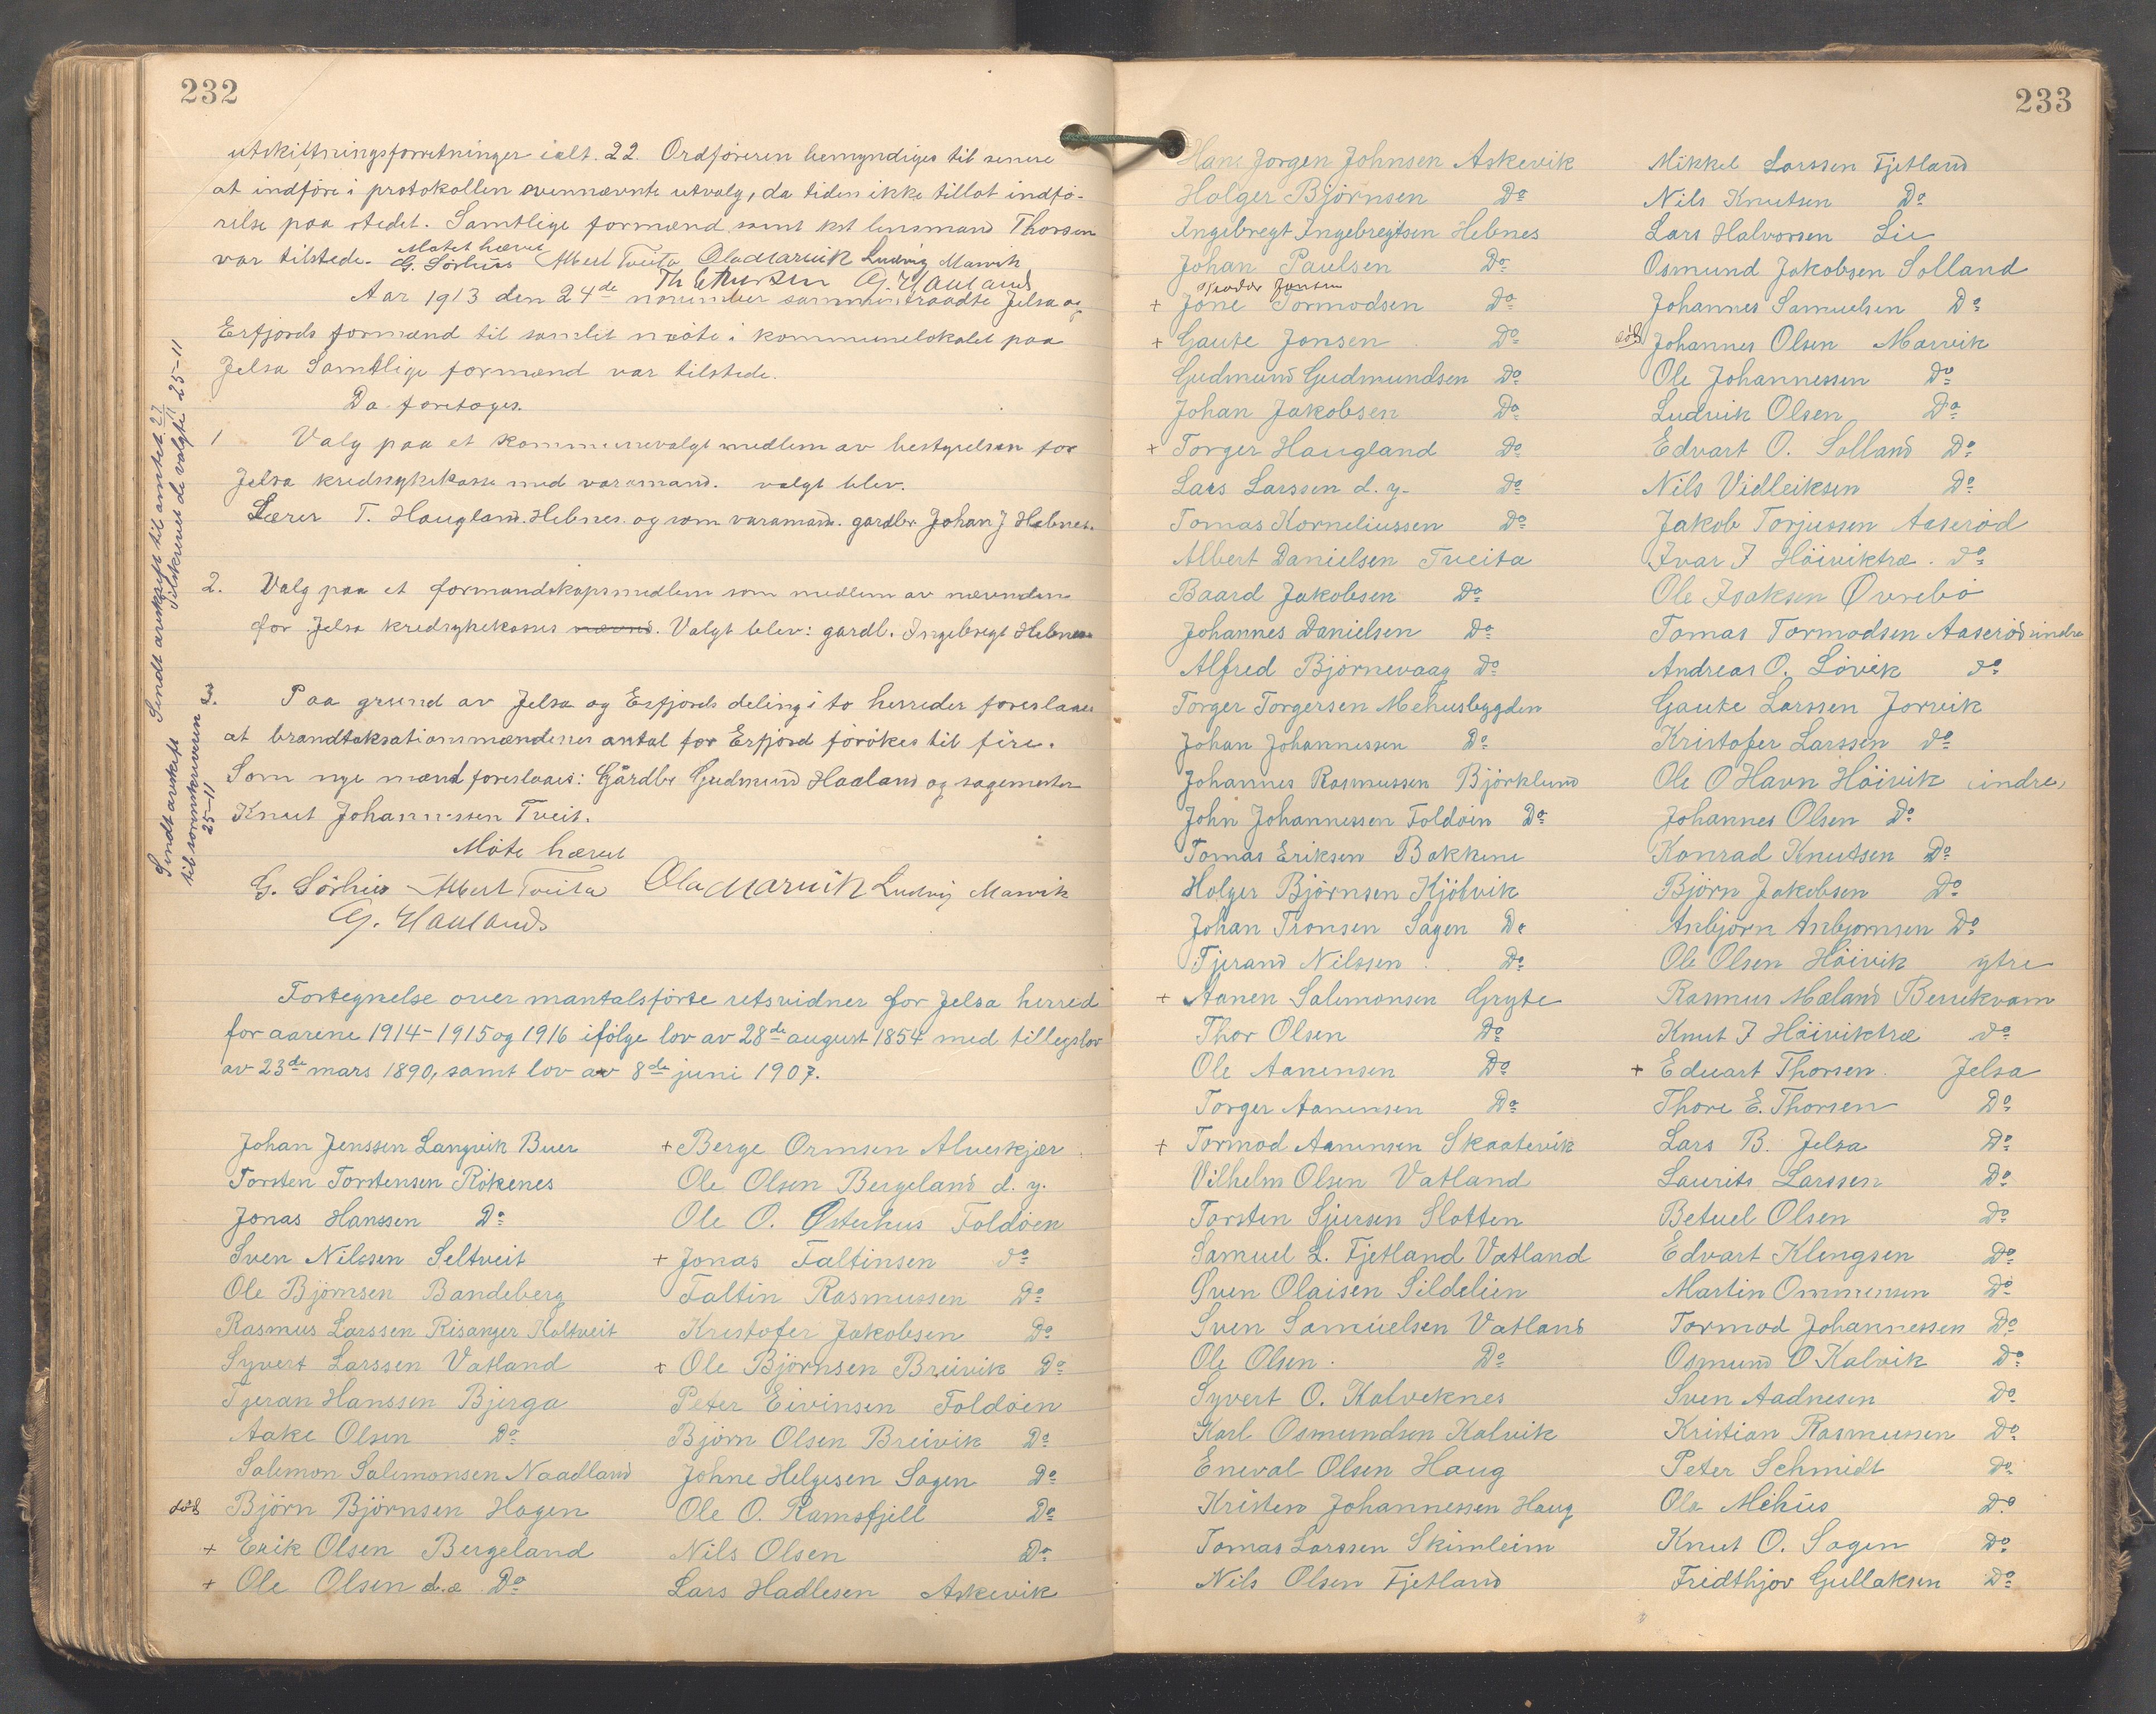 232
utskiftningsforretninger ialt. 22. Ordföreren bemyndiges til senere
at indföre i protokollen ovennævnte utvalg, da tiden ikke tillot indfö-
relse paa stedet. Samtlige formænd samt kst lensmand Thorsen
var tilstede. Mötet hævet
G. Sörhus Albert Tveita Ola Marvik Ludvig Marvik
Th. E. Thorsen G. Haaland
Aar 1913 den 24de november sammentraadte Jelsa og
Erfjords formænd til samlet möte i kommunelokalet paa
Jelsa Samtlige formænd var tilstede.
Da foretoges.
1 Valg paa et kommunevalgt medlem av bestyrelsen for
Jelsa kredssykekasse med varamand. valgt blev.
Lærer T. Haugland. Hebnes. og som varamand. gardbr. Johan J Hebnes.
2. Valg paa et formandskapsmedlem som medlem av nævnden
for Jelsa kredsykekasses nævnd. Valgt blev: gardb. Ingebregt Hebnes
3. Paa grund av Jelsa og Erfjords deling i to herreder foreslaaes
at brandtaksationsmændenes antal for Erfjord förökes til fire.
Som nye mænd foreslaaes: Gårdbr Gudmund Haaland og sagemester
Knut Johannessen Tveit.
Möte hævet
G. Sörhus Albert Tveita Ola Marvik Ludvig Marvik
G. Haaland
Sendt avskrift til amtet 27/11
Tilskrevet de valgte 25-11
Sendt avskrift
til sorenskriveren
25-11
Fortegnelse over mantalsförte retsvidner for Jelsa herred
for aarene 1914-1915 og 1916 ifölge lov av 28de august 1854 med tillegslov
av 23de mars 1890, samt lov av 8de juni 1907.
Johan Jenssen Langvik Buer
Torsten Torstensen Rökenes
Jonas Hanssen Do
Sven Nilssen Seltveit
Ole Björnsen Bandeberg
Rasmus Larssen Risanger Holtveit
Syvert Larssen Vatland
Tjeran Hanssen Bjerga
Aake Olsen Do
Salemon Salemonsen Naadland
död Björn Björnsen Hagen
+ Erik Olsen Bergeland
+ Ole Olsen d.æ Do
+ Berge Ormsen Alveskjær
Ole Olsen Bergeland d. y.
Ole O. Østerhus Foldöen
+ Jonas Faltinsen do
Faltin Rasmussen Do
Kristofer Jakobsen Do
+ Ole Björnsen Breivik Do
Peter Eivinsen Foldöen
Björn Olsen Breivik Do
Johne Helgesen Sagen Do
Ole O. Ramsfjell Do
Nils Olsen Do
Lars Hadlesen Askevik
233
Hans Jorgen Johnsen Askevik
Holger Björnsen Do
Ingebregt Ingebregtsen Hebnes
Johan Paulsen Do
Jonsen
+ Jone Tormodsen Do
+ Gaute Jonsen Do
Gudmund Gudmundsen Do
Johan Jakobsen Do
+ Torger Haugland do
Lars Larssen d. y. do
Tomas Korneliussen Do
Albert Danielsen Tveita
Baard Jakobsen Do
Johannes Danielsen Do
Alfred Björnevaag do
Torger Torgersen Mehusbygden
Johan Johannessen Do
Johannes Rasmussen Björklund
John Johannessen Foldöin Do
Tomas Eriksen Bakkene
Holger Björnsen Kjölvik
Johan Tronsen Sagen Do
Tjerand Nilssen Do
+ Aanen Salemonsen Gryte
Thor Olsen Do
Ole Aanensen Do
Torger Aanensen Do
+ Tormod Aanensen Skaatevik
Vilhelm Olsen Vatland
Torsten Sjursen Slotten
Samuel L. Fjetland Vatland
Sven Olaisen Sildelien
Sven Samuelsen Vatland
Ole Olsen Do
Syvert O. Kalveknes
Karl Osmundsen Kalvik
Eneval Olsen Haug
Kristen Johannessen Haug
Tomas Larssen Skimleim
Nils Olsen Fjetland
Mikkel Larssen Fjetland
Nils Knutsen Do
Lars Halvorsen Lie
Osmund Jakobsen Solland
Johannes Samuelsen Do
död Johannes Olsen Marvik
Ole Johannessen Do
Ludvik Olsen Do
Edvart O. Solland Do
Nils Vidleiksen Do
Jakob Torjussen Aaseröd
Ivar J Höiviktræ do
Ole Isaksen Øvrebö
Tomas Tormodsen Aaseröd indre
Andreas O. Lövik do
Gaute Larssen Jorvik
Kristofer Larssen do
Ole O Havn Höivik indre
Johannes Olsen Do
Konrad Knutsen Do
Björn Jakobsen Do
Anbjörn Anbjornsen Do
Ole Olsen Höivik ytre
Rasmus Mæland Berrekvam
Knut J Höiviktræ do
+ Edvart Thorsen Jelsa
Thore E. Thorsen Do
Lars B. Jelsa Do
Laurits Larssen Do
Betuel Olsen do
Edvart Klengsen Do
Martin Ommensen Do
Tormod Johannessen Do
Osmund O Kalvik Do
Sven Aadnesen Do
Kristian Rasmussen Do
Peter Schmidt Do
Ola Mehus Do
Knut O. Sagen Do
Fridthjov Gullaksen Do